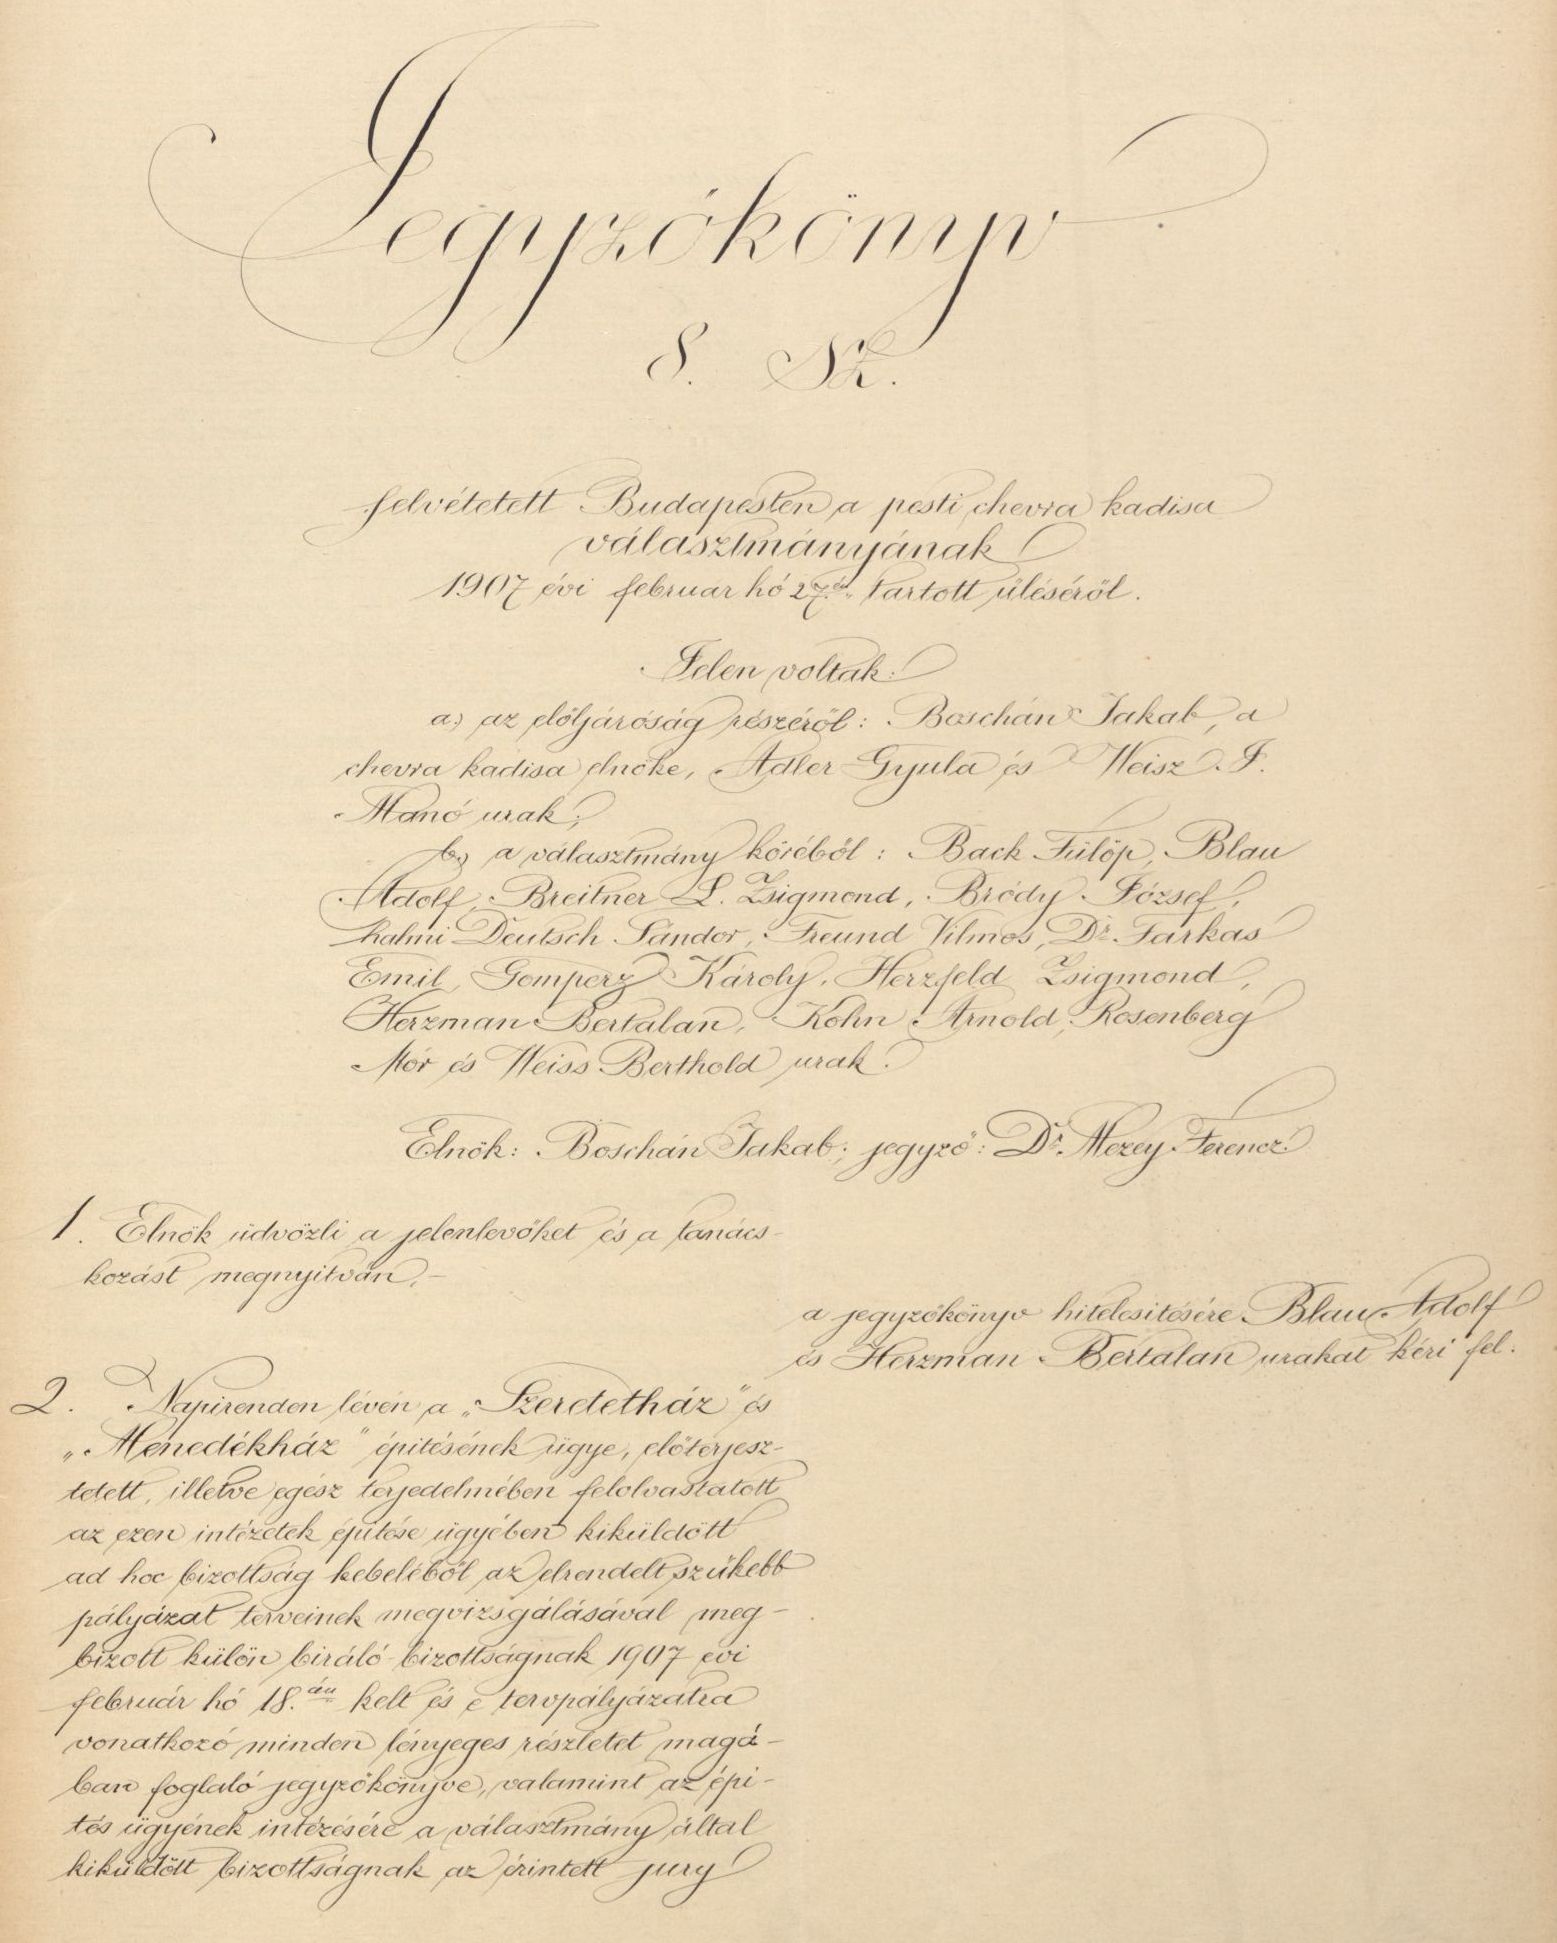 Jegyzőkönyv
8. Sz.
felvétetett Budapesten a pesti chevra kadisa
választmányának
1907 évi februar hó 27.én tartott üléséről.
Jelen voltak:
a., az elöljáróság részéről: Boschán Jakab, a
chevra kadisa elnöke, Adler Gyula és Weisz J.
Manó urak;
b., a választmány köréből: Back Fülöp, Blau
Adolf, Breitner L. Zsigmond, Bródy József,
halmi Deutsch Sándor, Freund Vilmos, Dr. Farkas
Emil, Gomperz Károly, Herzfeld Zsigmond,
Herzman Bertalan, Kohn Arnold, Rosenberg
Mór és Weiss Berthold urak.
Elnök: Boschán Jakab; jegyző: Dr. Mezey Ferencz.
1. Elnök üdvözli a jelenlevőket és a tanács-
kozást megnyitván,-
a jegyzőkönyv hitelesitésére Blau Adolf
és Herzman Bertalan urakat kéri fel.
2. Napirenden lévén a „Szeretetház" és
„Menedékház" épitésének ügye, előterjesz-
tetett, illetve egész terjedelmében felolvastatott
az ezen intézetek épitése ügyében kiküldött
ad hoc bizottság kebeléből az elrendelt szűkebb
pályázat terveinek megvizsgálásával meg-
bizott külön biráló-bizottságnak 1907 évi
február hó 18.án kelt és e tervpályázatra
vonatkozó minden lényeges részletet magá-
ban foglaló jegyzőkönyve, valamint az épi-
tés ügyének intézésére a választmány által
kiküldött bizottságnak az érintett jury